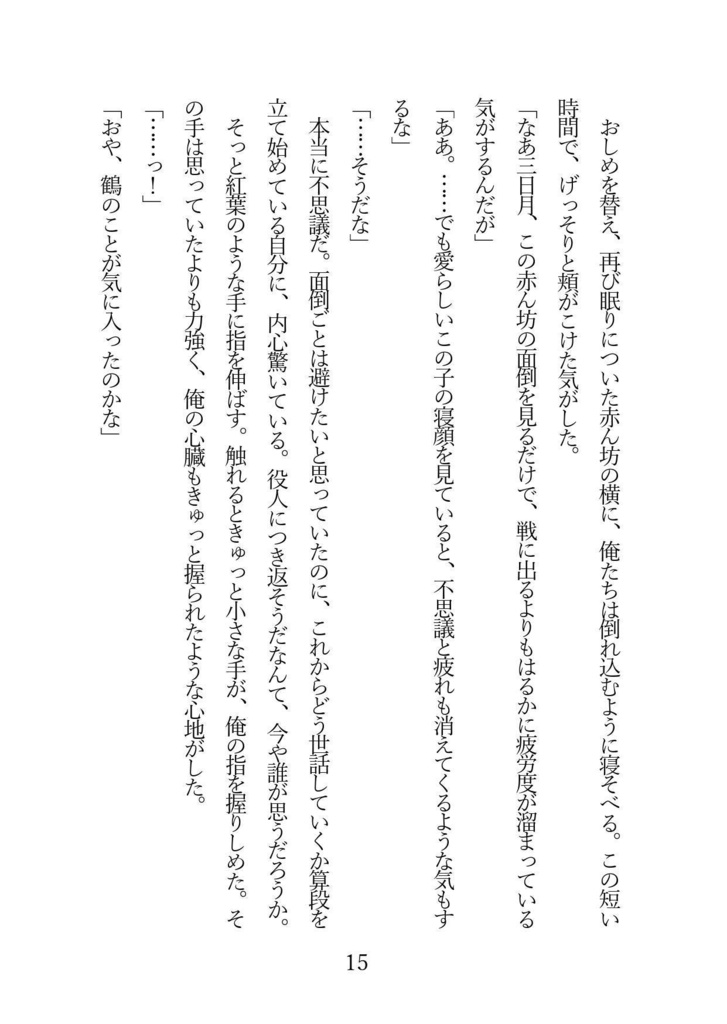 おしめを替え、再び眠りについた赤ん坊の横に、俺たちは倒れ込むように寝そべる。この短い
時間で、げっそりと頬がこけた気がした。
「なあ三日月、この赤ん坊の面倒を見るだけで、戦に出るよりもはるかに疲労度が溜まっている
気がするんだが」
「ああ。……でも愛らしいこの子の寝顔を見ていると、不思議と疲れも消えてくるような気もす
るな」
「……そうだな」
本当に不思議だ。面倒ごとは避けたいと思っていたのに、これからどう世話していくか算段を
立て始めている自分に、内心驚いている。役人につき返そうだなんて、今や誰が思うだろうか。
そっと紅葉のような手に指を伸ばす。触れるときゅっと小さな手が、俺の指を握りしめた。そ
の手は思っていたよりも力強く、俺の心臓もきゅっと握られたような心地がした。
「……っ！」
「おや、鶴のことが気に入ったのかな」
15